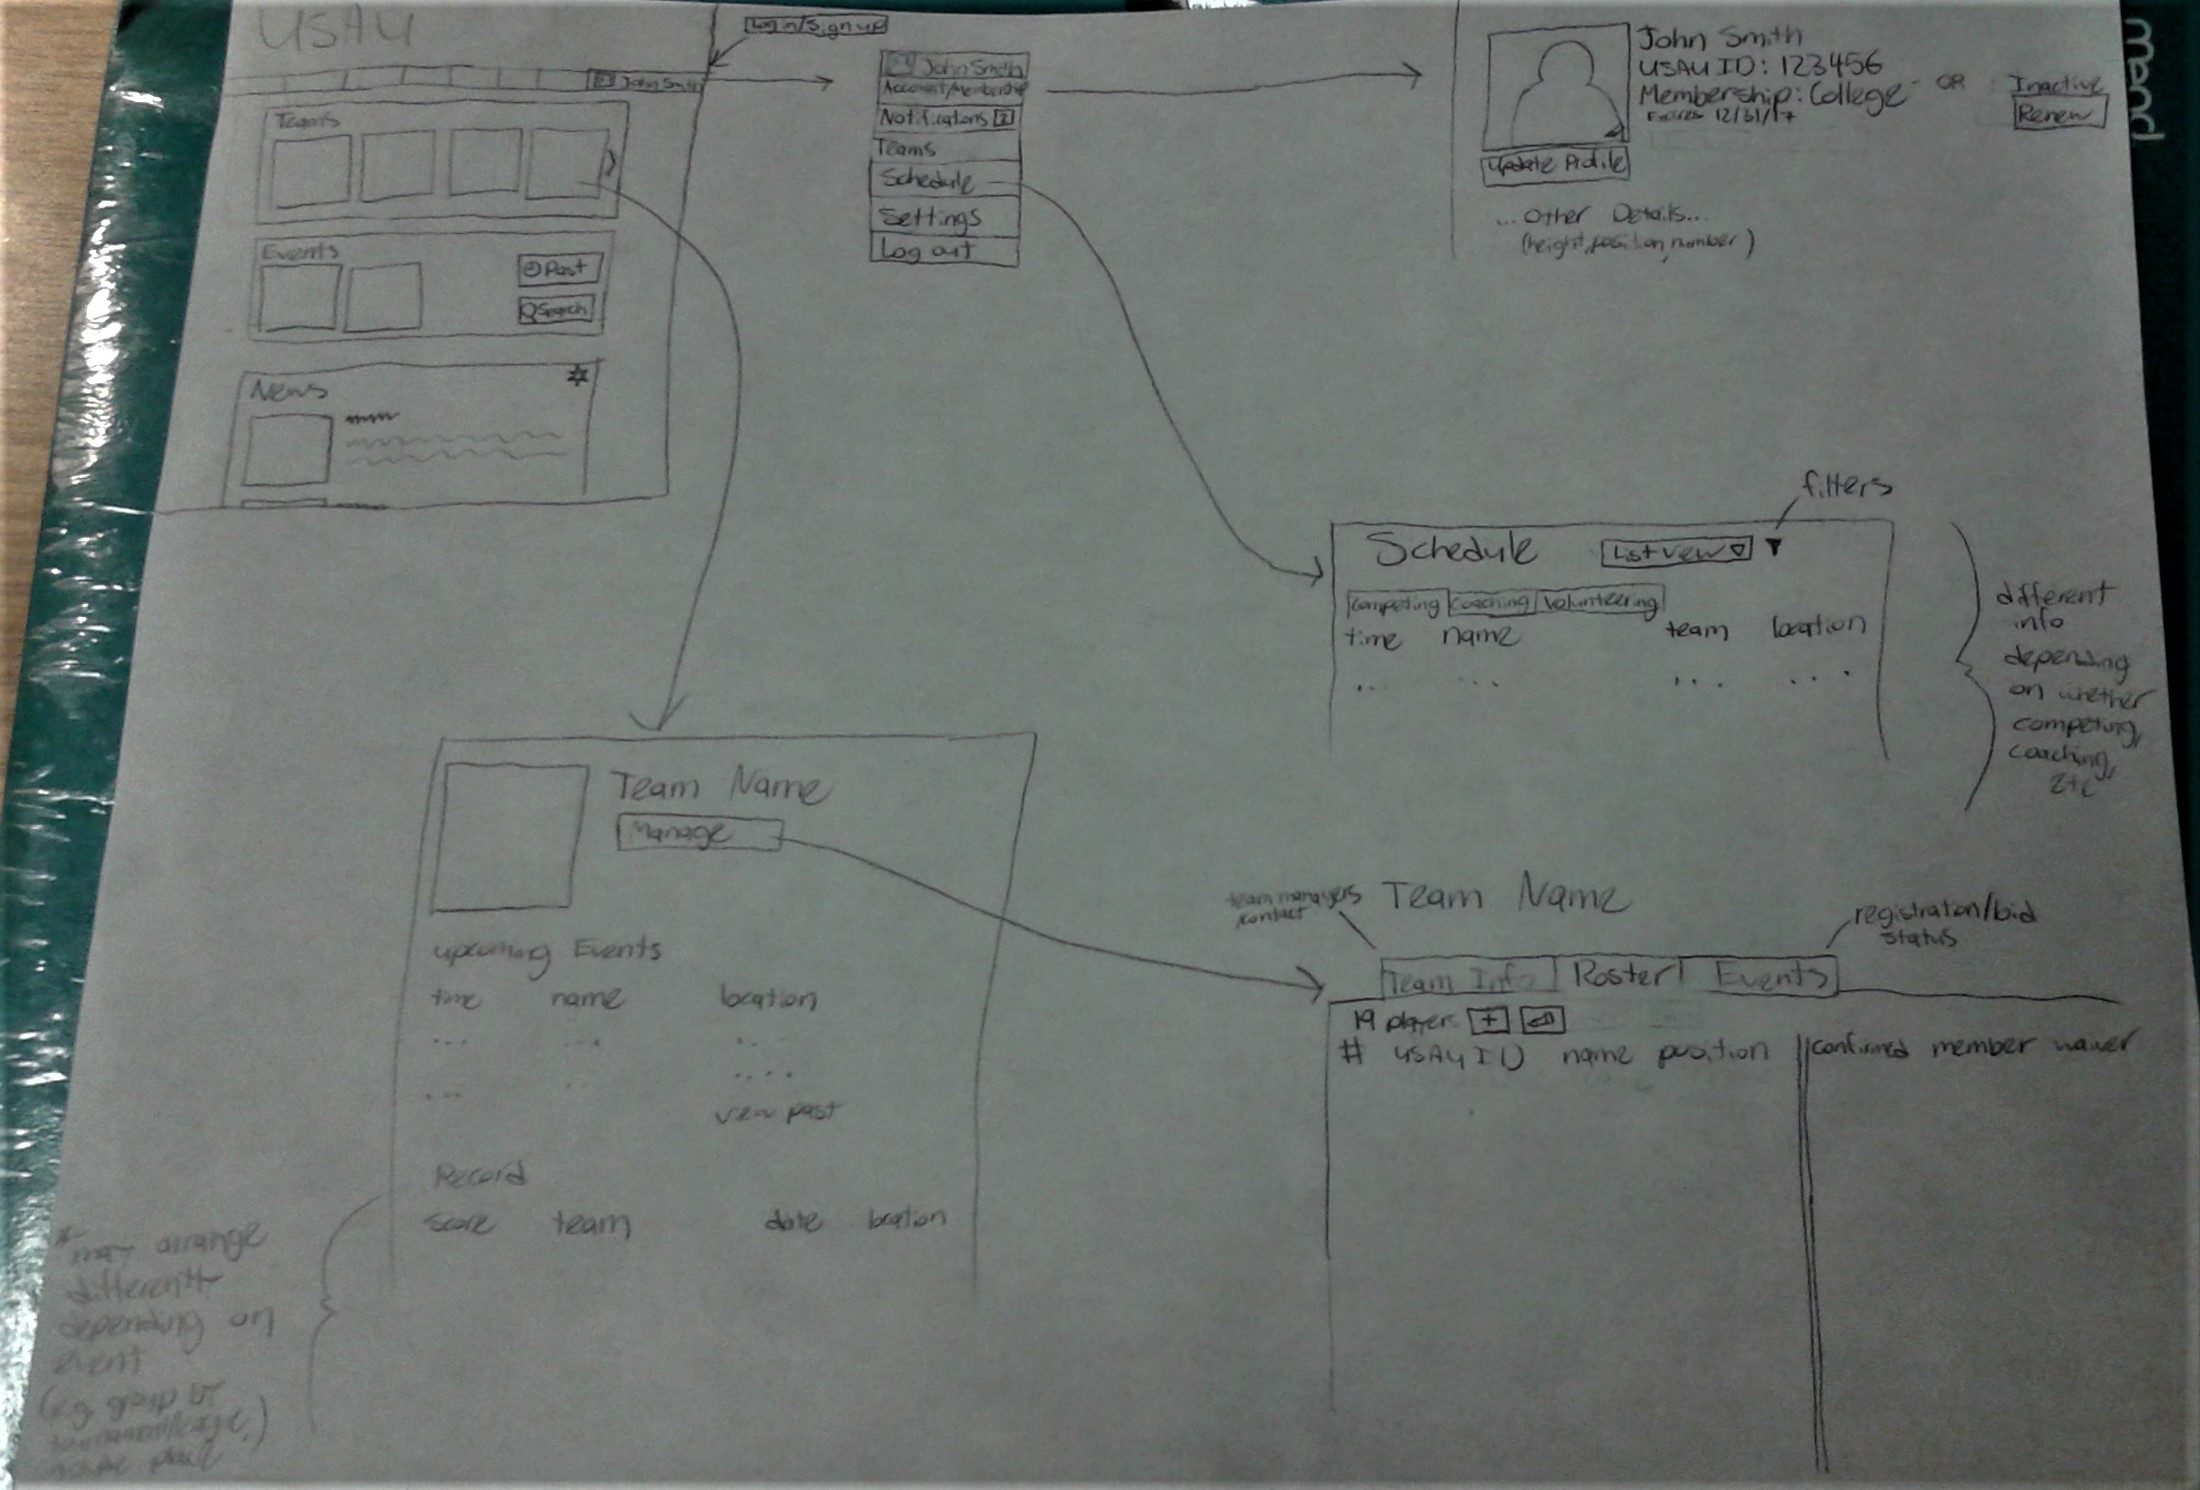 USAU
Log in/Sign up
John Smith
Teams
Events
Past
Search
News
John Smith
Account/Membership
Notifications 2
Teams
Schedule
Settings
Log out
John Smith
USAU ID: 123456
Membership: College
Expires 12/31/17
OR
Inactive
Renew
Update Profile
...Other Details...
(height, position, number)
filters
Schedule
List View
competing coaching volunteering
time name team location
... ... ... ...
different
info
depending
on whether
competing,
coaching,
etc
Team Name
Manage
upcoming Events
time name location
... ... ...
... .. ....
view past
Record
score team date location
* may arrange
differently
depending on
event
(e.g. group by
tournament/league,)
include place
team managers
contact
Team Name
registration/bid
status
Team Info Roster Events
19 players +
# USAU ID name position confirmed member waiver
mead